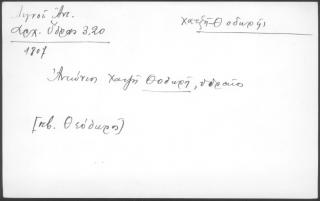 Λιγνοῦ Ἀντ.
Ἀρχ. Ὕδρας 3,20
χατζῆ-Θοδωρῆς
1807
Ἀντώνιος χατζῆ Θοδωρῆ, ὑδραῖος
[πβ. Θεόδωρος]